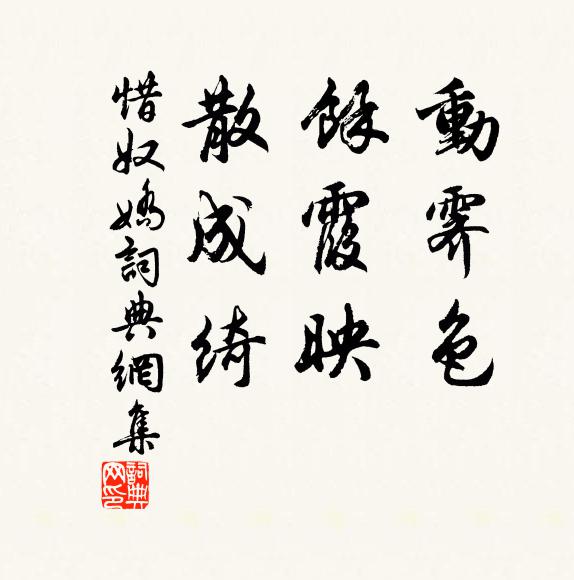 動霽色
餘霞映
散成綺
惜奴嬌詞典網集
詞典网印